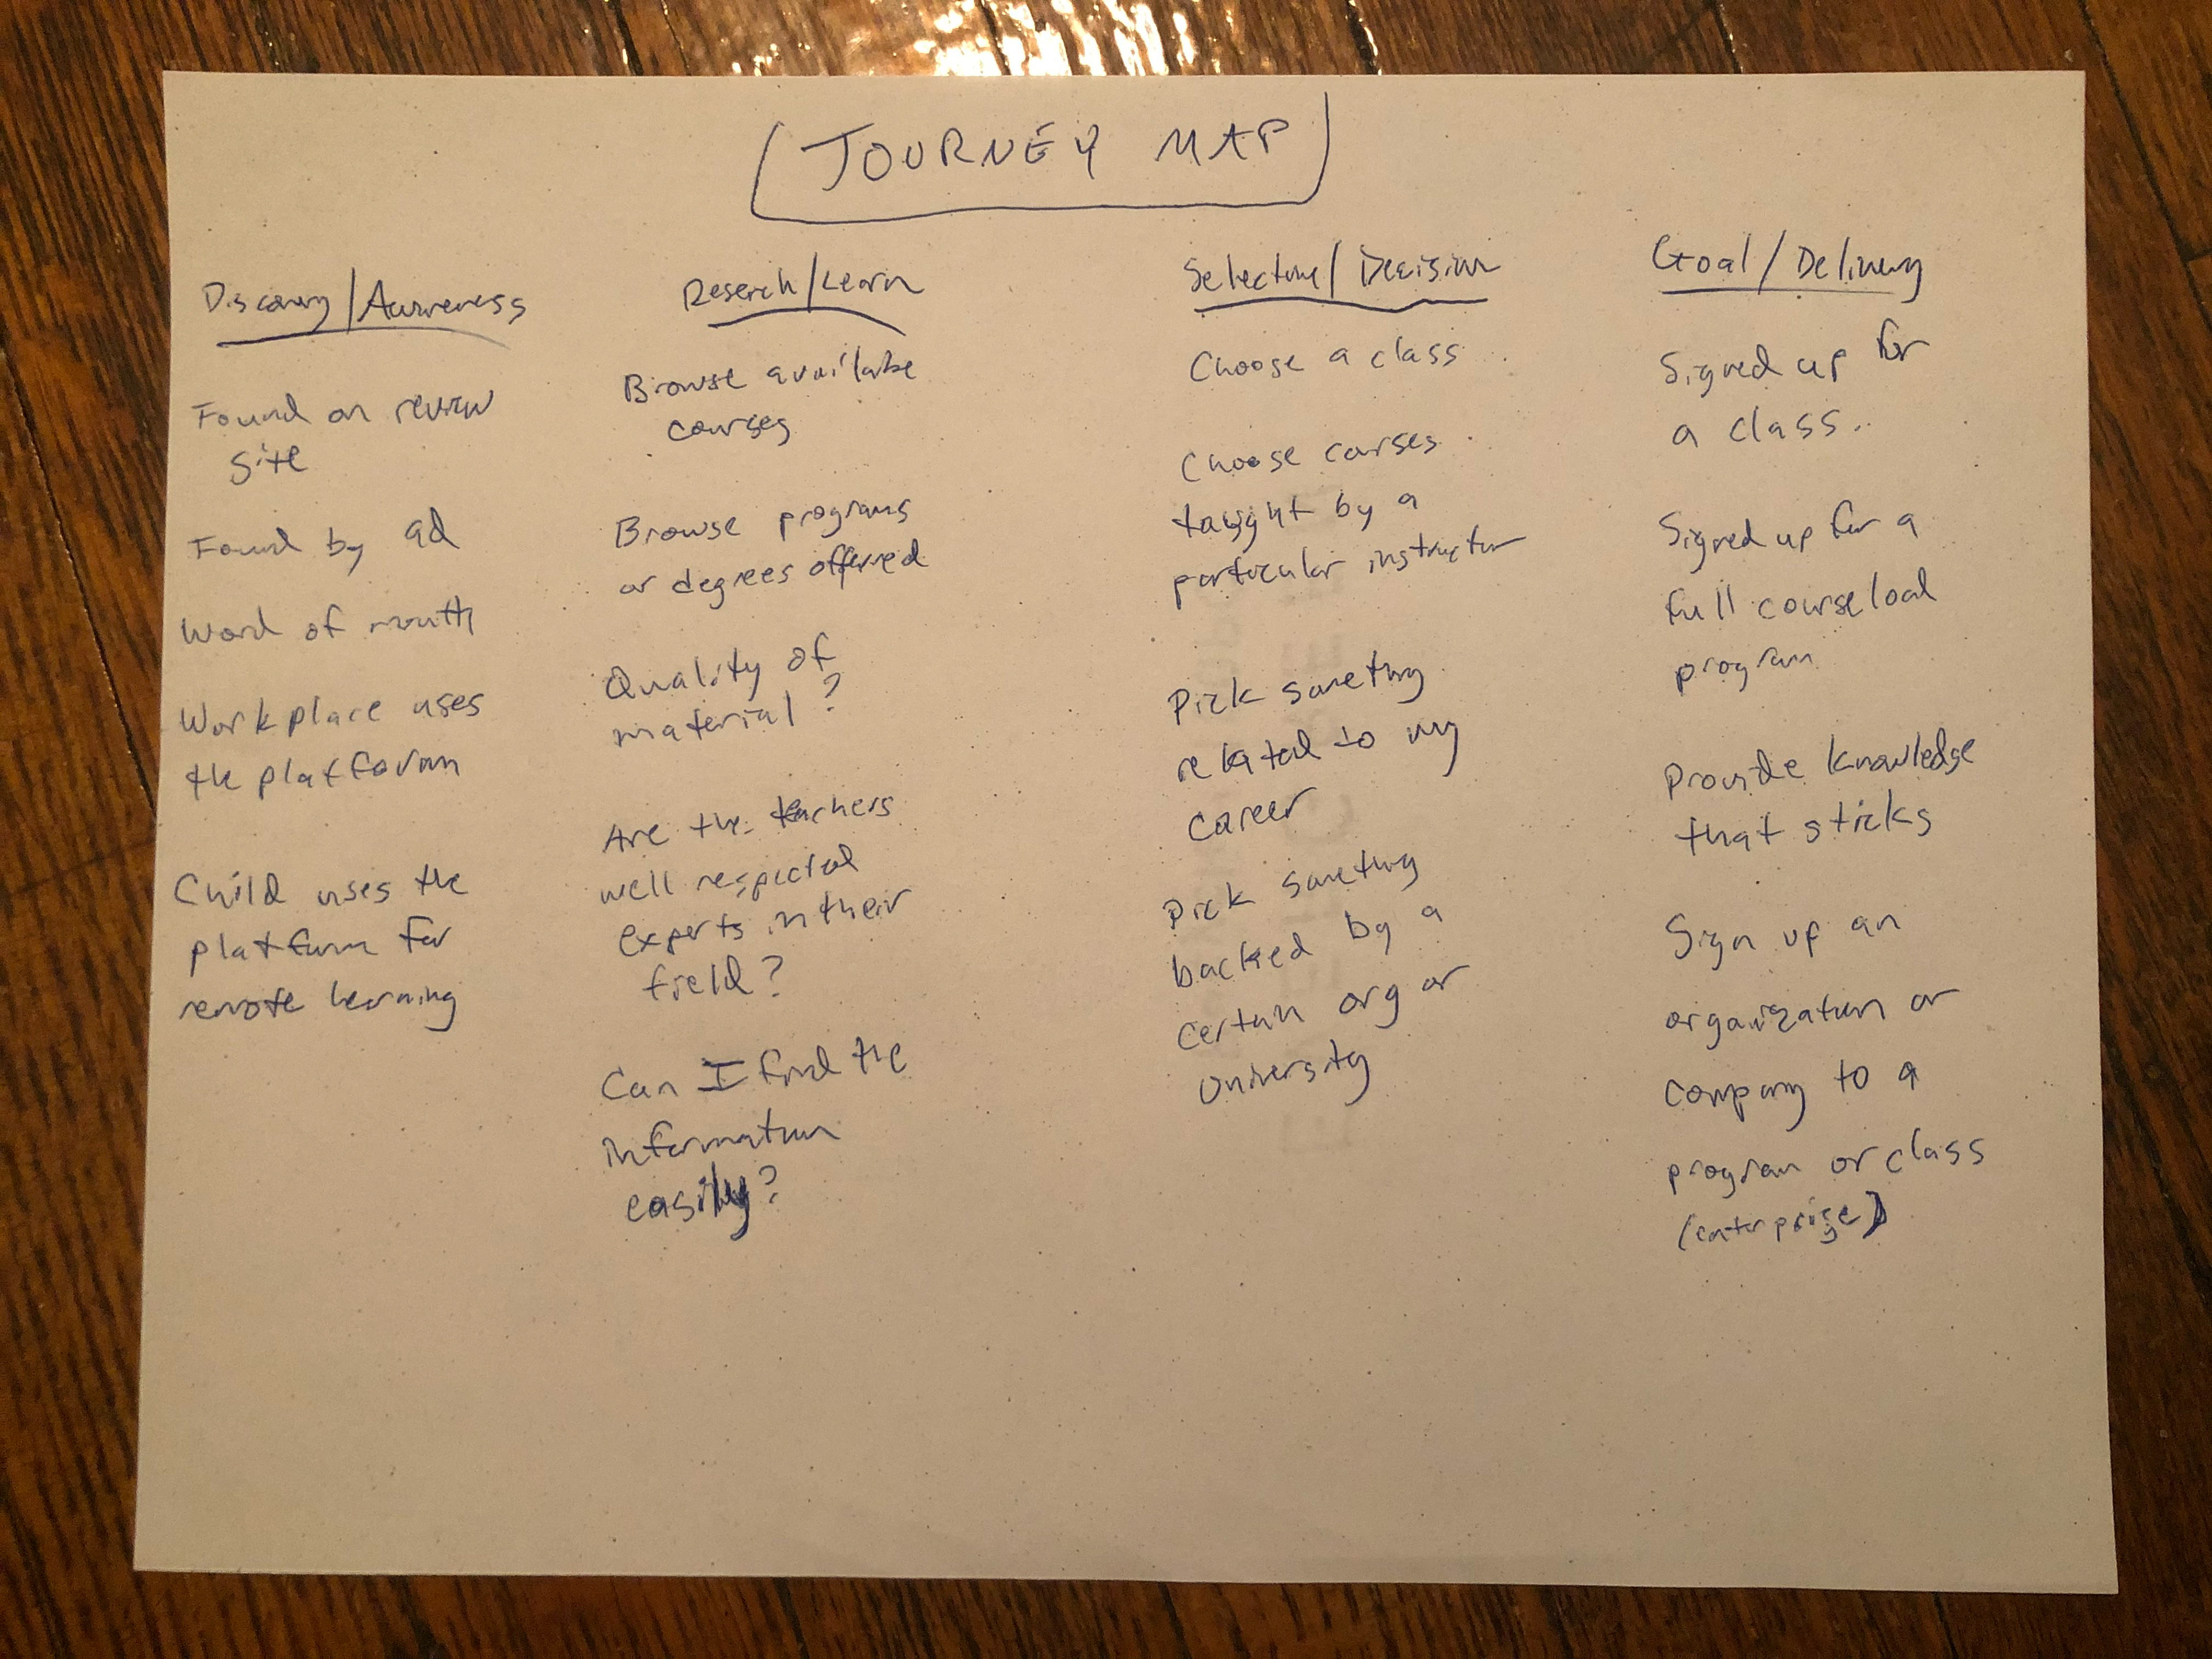 JOURNEY MAP
Discovery/Awareness
Found on review
site
Found by ad
Word of mouth
Workplace uses
the platforom
Child uses the
platform for
remote learning
Reserch/Learn
Browse availabe
courses
Browse programs
or degrees offerred
Quality of
material?
Are the teachers
well respected
experts in their
field?
Can I find the
information
easily?
Selection/Decision
Choose a class
Choose corses
taught by a
particular instructor
Pick something
related to my
career
Pick something
backed by a
certain org or
University
Goal/Delivery
Signed up for
a class..
Signed up for a
full course load
program
Provide knowledge
that sticks
Sign up an
organization or
company to a
program or class
(enterprise)